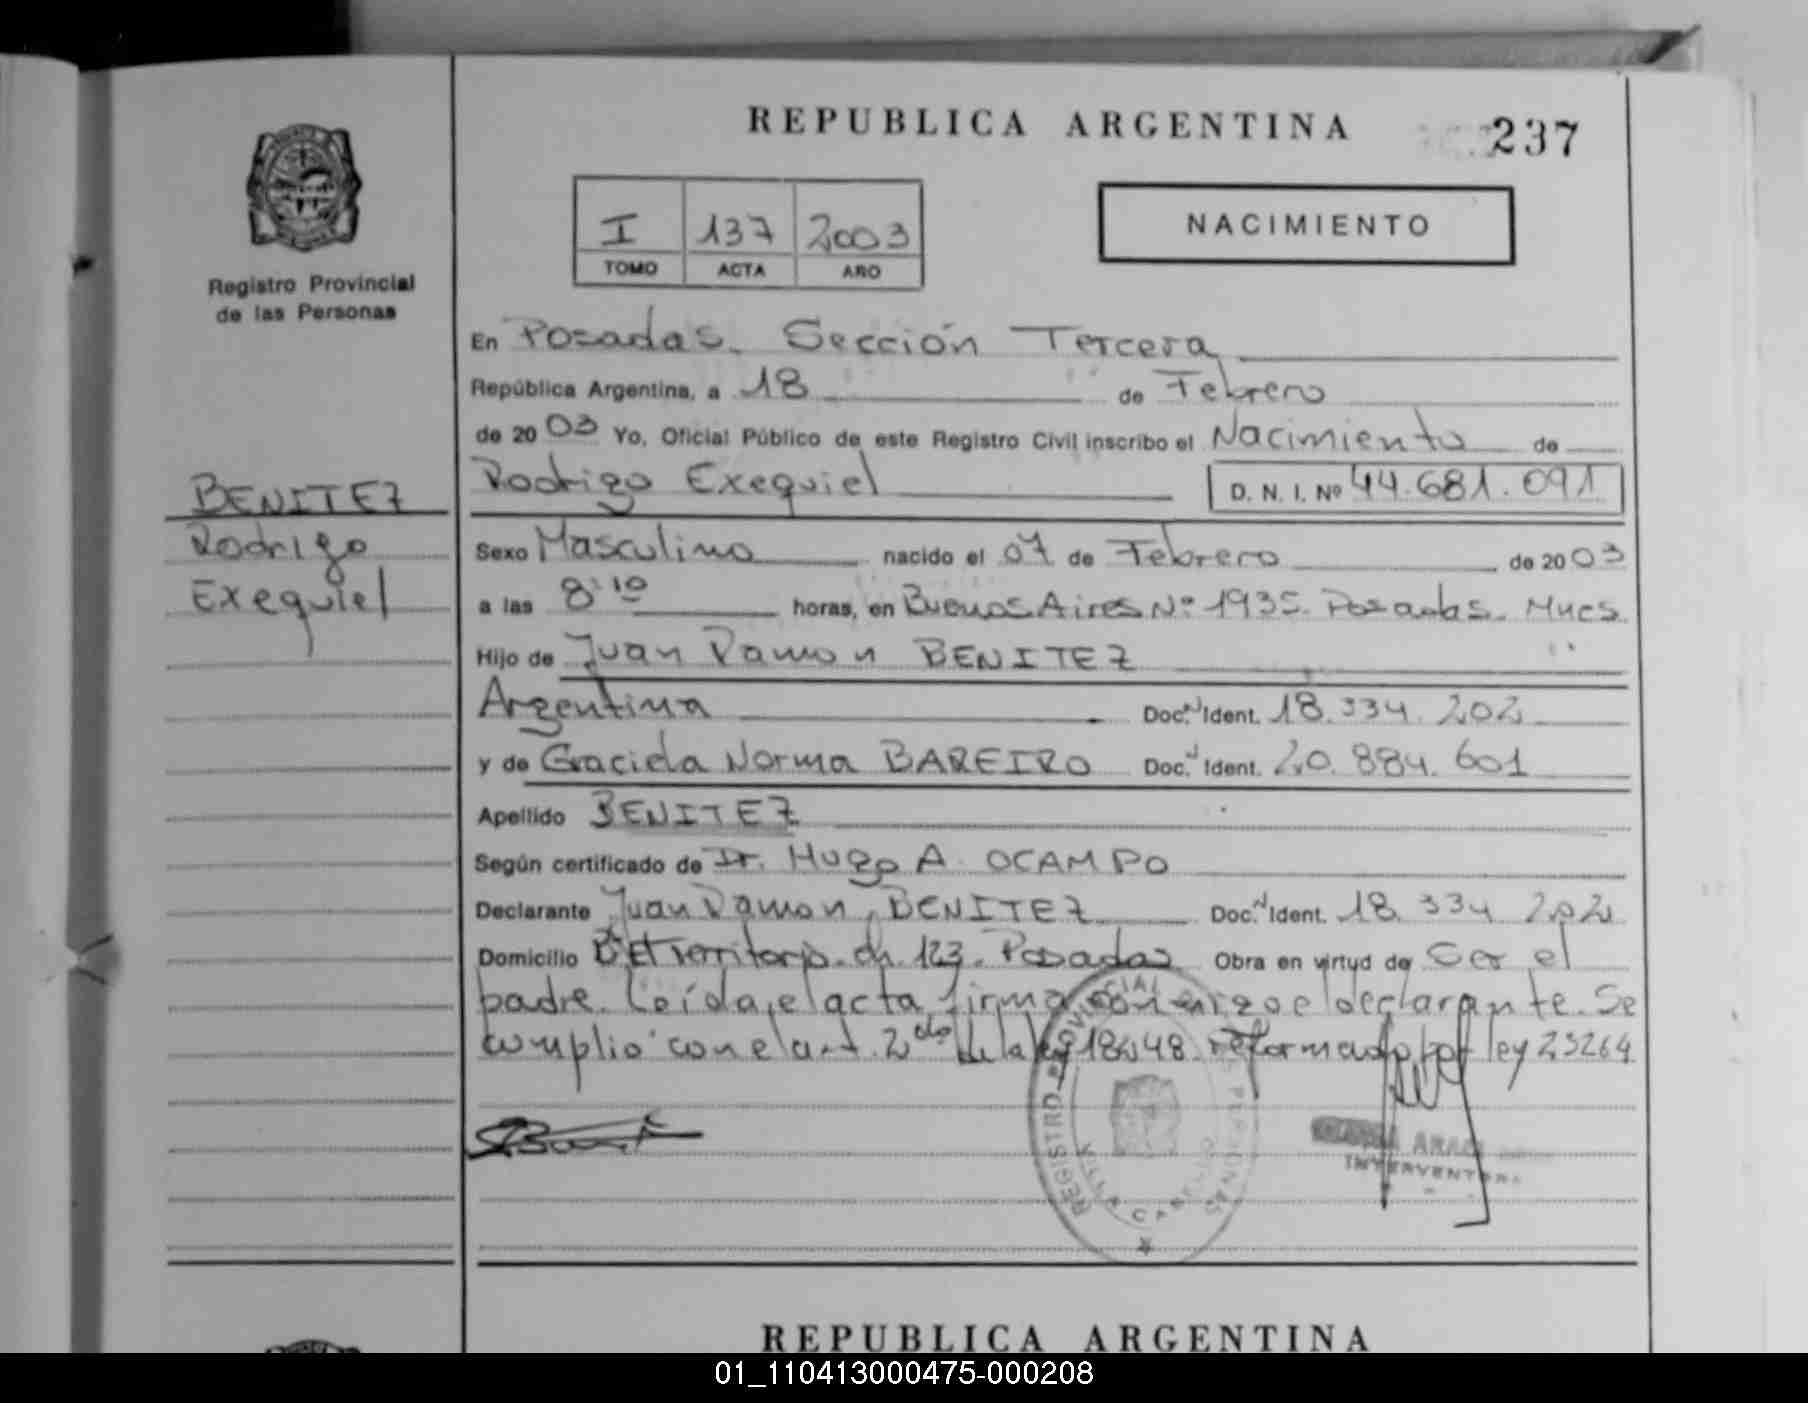 REPUBLICA ARGENTINA
237
I 137 2003
TOMO ACTA AÑO
NACIMIENTO
Registro Provincial
de las Personas
En Posadas. Sección Tercera
República Argentina, a 18 de Febrero
de 2003 Yo, Oficial Público de este Registro Civil inscribo el Nacimiento de
Rodrigo Exequiel D. N. I. Nº 44.681.091
BENITEZ
Rodrigo
Exequiel
Sexo Masculino nacido el 07 de Febrero de 2003
a las 8:10 horas, en Buenos Aires Nº 1935. Posadas. Mnes.
Hijo de Juan Ramon BENITEZ
Argentina Doc. Ident. 18.334.202
y de Graciela Norma BAREIRO Doc. Ident. 20.884.601
Apellido BENITEZ
Según certificado de Dr. Hugo A. OCAMPO
Declarante Juan Ramon, BENITEZ Doc. Ident. 18.334.202
Domicilio Bº El Territorio. ch. 123. Posadas Obra en virtud de Ser el
padre. Leída el acta, firma conmigo el declarante. Se
cumplio con el art. 2do de la ley 18248. reformado por ley 23264.
REGISTRO PROVINCIAL DE LAS PERSONAS
VILLA CABELLO
INTERVENTORA
REPUBLICA ARGENTINA
01_110413000475-000208